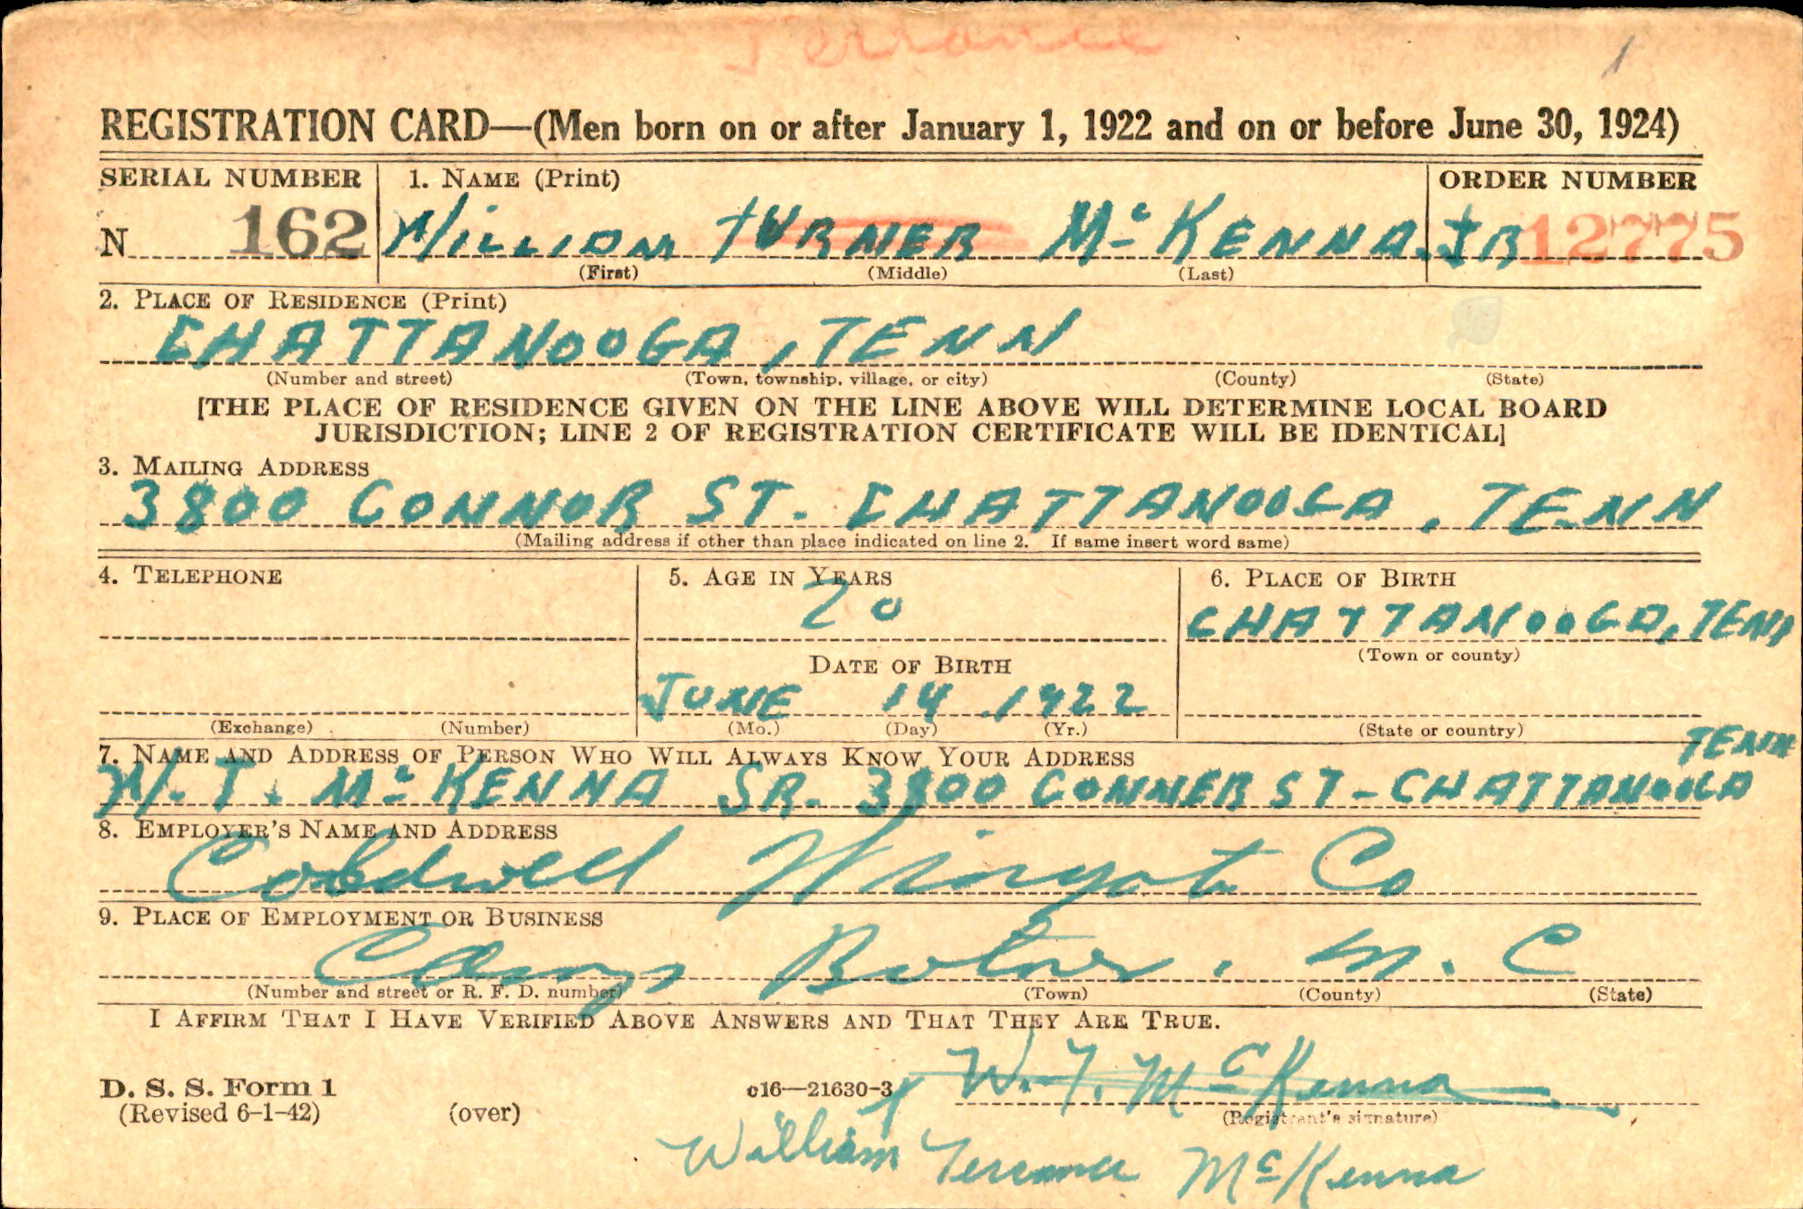 Terrance
1
REGISTRATION CARD—(Men born on or after January 1, 1922 and on or before June 30, 1924)
SERIAL NUMBER 1. NAME (Print) ORDER NUMBER
N 162 WILLIAM TURNER McKENNA. JR 12775
(First) (Middle) (Last)
2. PLACE OF RESIDENCE (Print)
CHATTANOOGA, TENN
(Number and street) (Town, township, village, or city) (County) (State)
[THE PLACE OF RESIDENCE GIVEN ON THE LINE ABOVE WILL DETERMINE LOCAL BOARD
JURISDICTION; LINE 2 OF REGISTRATION CERTIFICATE WILL BE IDENTICAL]
3. MAILING ADDRESS
3800 CONNOR ST. CHATTANOOGA, TENN
(Mailing address if other than place indicated on line 2. If same insert word same)
4. TELEPHONE 5. AGE IN YEARS 6. PLACE OF BIRTH
20 CHATTANOOGA, TENN
DATE OF BIRTH (Town or county)
JUNE 14 1922
(Exchange) (Number) (Mo.) (Day) (Yr.) (State or country)
7. NAME AND ADDRESS OF PERSON WHO WILL ALWAYS KNOW YOUR ADDRESS
W. T. McKENNA SR. 3800 CONNER ST - CHATTANOOGA TENN
8. EMPLOYER'S NAME AND ADDRESS
Coldwell Wingate Co
9. PLACE OF EMPLOYMENT OR BUSINESS
Camp Butner, N. C
(Number and street or R. F. D. number) (Town) (County) (State)
I AFFIRM THAT I HAVE VERIFIED ABOVE ANSWERS AND THAT THEY ARE TRUE.
W. T. McKenna
D. S. S. Form 1 c16—21630-3
(Revised 6-1-42) (over) (Registrant's signature)
William Terrance McKenna